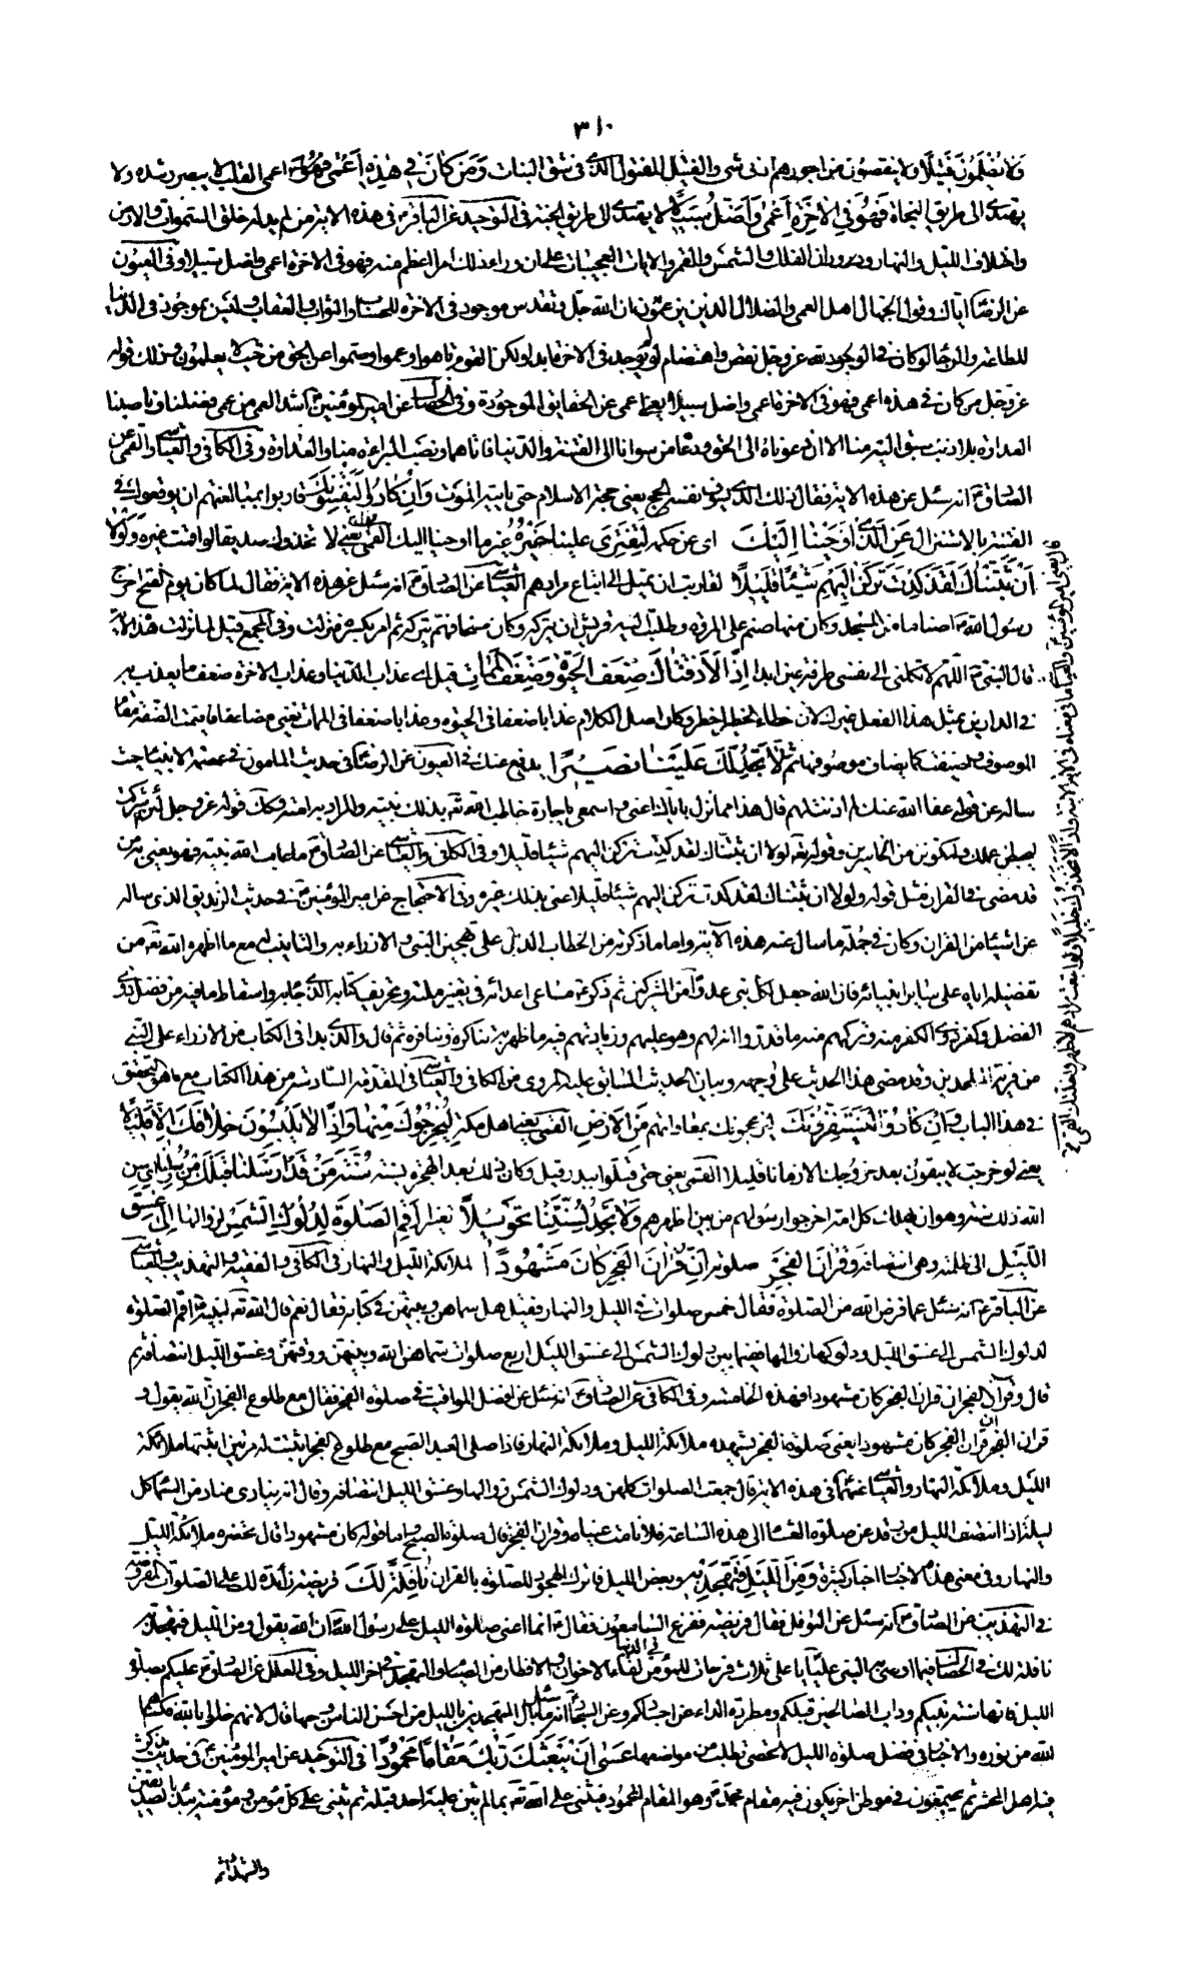 ٣١٠
وَلَا يُظْلَمُونَ فَتِيلًا ولا ينقصون من اجورهم ادنى شئ والفتيل المفتول الذى فى شق النبات وَمَنْ كَانَ فِي هٰذِهِ أَعْمَىٰ فَهُوَ اعمى القلب لا يبصر رشده ولا
يهتدى الى طريق النجاة فَهُوَ فِي الْآخِرَةِ أَعْمَىٰ وَأَضَلُّ سَبِيلًا لا يهتدى الى طريق الجنة فى التوحيد عن الباقر فى هذه الاية من لم يدله خلق السموات والارض
واختلاف الليل والنهار ودوران الفلك والشمس والقمر والايات العجيبات على ان وراء ذلك امرا اعظم منه فهو فى الاخرة اعمى واضل سبيلا وفى العيون
عن الرضا اياك وقول الجهال اهل العمى والضلال الذين يزعمون ان الله جل وتقدس موجود فى الاخرة للحساب والثواب والعقاب وليس بموجود فى الدنيا
للطاعة والرجا ولو كان فى الوجود لله عز وجل نقص واهتضام لم يوجد فى الاخرة ابدا ولكن القوم تاهوا وعموا وصموا عن الحق من حيث لا يعلمون وذلك قوله
عز وجل من كان فى هذه اعمى فهو فى الاخرة اعمى واضل سبيلا يعنى اعمى عن الحقايق الموجودة وفى الخصال عن امير المؤمنين اشد العمى من عمى فضلنا وناصبنا
العداوة بلا ذنب سبق اليه منا الا ان دعوناه الى الحق ودعاه من سوانا الى الفتنة والدنيا فاتاهما ونصب البراءة منا والعداوة وفى الكافى والعياشى والقمى عن
الصادق انه سئل عن هذه الاية فقال ذلك الذى يسوف نفسه الحج يعنى حجة الاسلام حتى ياتيه الموت وَإِنْ كَادُوا لَيَفْتِنُونَكَ قاربوا بمبالغتهم ان يوقعوك فى
الفتنة بالاستنزال عَنِ الَّذِي أَوْحَيْنَا إِلَيْكَ اى عن حكمه لِتَفْتَرِيَ عَلَيْنَا غَيْرَهُ غير ما اوحينا اليك القمى يعنى لاتخذوك صديقا لو اقمت غيره وَلَوْلَا
أَنْ ثَبَّتْنَاكَ لَقَدْ كِدْتَ تَرْكَنُ إِلَيْهِمْ شَيْئًا قَلِيلًا لقاربت ان تميل الى اتباع مرادهم العياشى عن الصادق انه سئل عن هذه الاية فقال لما كان يوم الفتح اخرج
رسول الله اصناما من المسجد وكان منها صنم على المروة وطلبت اليه قريش ان يتركه وكان مستحيا فهم بتركه ثم امر بكسره فنزلت وفى المجمع قيل لما نزلت هذه الاية
قال النبى اللهم لا تكلنى الى نفسى طرفة عين ابدا إِذًا لَأَذَقْنَاكَ ضِعْفَ الْحَيَاةِ وَضِعْفَ الْمَمَاتِ قيل اى عذاب الدنيا وعذاب الاخرة ضعف ما يعذب به
فى الدارين بمثل هذا الفعل غيرك لان خطاء الخطير اخطر وكان اصل الكلام عذابا ضعفا فى الحيوة وعذابا ضعفا فى الممات يعنى مضاعفا فاقيمت الصفة مقام
الموصوف ثم اضيفت كما يضاف موصوفها ثُمَّ لَا تَجِدُ لَكَ عَلَيْنَا نَصِيرًا يدفع عنك فى العيون عن الرضا فى حديث المامون فى عصمة الانبياء حيث
ساله عن قوله عفا الله عنك لم اذنت لهم قال هذا مما نزل باياك اعنى واسمعى يا جارة خاطب الله بذلك نبيه والمراد به امته وكذلك قوله عز وجل لئن اشركت
ليحبطن عملك ولتكونن من الخاسرين وقوله ولولا ان ثبتناك لقد كدت تركن اليهم شيئا قليلا وفى الكافى والعياشى عن الصادق ما عاتب الله نبيه فهو يعنى به من
قد مضى فى القران مثل قوله ولولا ان ثبتناك لقد كدت تركن اليهم شيئا قليلا عنى بذلك غيره وفى الاحتجاج عن امير المؤمنين فى حديث الزنديق الذى ساله
عن اشياء من القران وكان فى جملة ما سال عنه هذه الاية واما ما ذكرته من الخطاب الدال على تهجين النبى والازراء به والتانيب له مع ما اظهره الله من
تفضيله اياه على ساير انبيائه فان الله جعل لكل نبى عدوا من المشركين ثم ذكر مساعى اعدائه فى تغيير ملته وتحريف كتابه الذى جاء به واسقاط ما فيه من فضل ذوى
الفضل وكفر ذوى الكفر منه وتركهم منه ما قدروا انه لهم وهو عليهم وزيادتهم فيه ما ظهر به تناكره وتنافره ثم قال والذى بدا فى الكتاب من الازراء على النبى
من فرية الملحدين وقد مضى هذا الحديث على وجهه وبيان الحديث السابق عليه المروى من الكافى والعياشى فى المقدمة السادسة من هذا الكتاب مع ما هو التحقيق
فى هذا الباب وَإِنْ كَادُوا لَيَسْتَفِزُّونَكَ ليزعجونك بمعاداتهم مِنَ الْأَرْضِ القمى يعنى اهل مكة لِيُخْرِجُوكَ مِنْهَا وَإِذًا لَا يَلْبَثُونَ خِلَافَكَ إِلَّا قَلِيلًا
يعنى لو خرجت لا يبقون بعد خروجك الا زمانا قليلا القمى يعنى حتى قتلوا ببدر وقيل وكان ذلك بعد الهجرة بسنة سُنَّةَ مَنْ قَدْ أَرْسَلْنَا قَبْلَكَ مِنْ رُسُلِنَا اى سن
الله ذلك سنة وهو ان يهلك كل امة اخرجوا رسولهم من بين اظهرهم وَلَا تَجِدُ لِسُنَّتِنَا تَحْوِيلًا تغييرا أَقِمِ الصَّلَاةَ لِدُلُوكِ الشَّمْسِ لزوالها إِلَىٰ غَسَقِ
اللَّيْلِ الى ظلمته وهى انتصافه وَقُرْآنَ الْفَجْرِ صلوته إِنَّ قُرْآنَ الْفَجْرِ كَانَ مَشْهُودًا ملائكة الليل والنهار فى الكافى والفقيه والتهذيب والعياشى
عن الباقر انه سئل عما فرض الله من الصلوة فقال خمس صلوات فى الليل والنهار فقيل هل سماهن وبينهن فى كتابه فقال نعم قال الله لنبيه اقم الصلوة
لدلوك الشمس الى غسق الليل ودلوكها زوالها ففيما بين دلوك الشمس الى غسق الليل اربع صلوات سماهن الله وبينهن ووقتهن وغسق الليل انتصافه ثم
قال وقران الفجر ان قران الفجر كان مشهودا فهذه الخامسة وفى الكافى عن الصادق انه سئل عن افضل المواقيت فى صلوة الفجر فقال مع طلوع الفجر ان الله يقول و
قران الفجر ان قران الفجر كان مشهودا يعنى صلوة الفجر تشهده ملائكة الليل وملائكة النهار فاذا صلى العبد الصبح مع طلوع الفجر اثبتت له مرتين اثبتها ملائكة
الليل وملائكة النهار والعياشى عنهما فى هذه الاية قال جمعت الصلوات كلهن ودلوك الشمس زوالها وغسق الليل انتصافه وقال انه ينادى مناد من السماء كل
ليلة اذا انتصف الليل من رقد عن صلوة العشاء الى هذه الساعة فلا نامت عيناه وقران الفجر قال صلوة الصبح واما قوله كان مشهودا قال تحضره ملائكة الليل
والنهار وفى معنى هذا من الاخبار اخبار كثيرة وَمِنَ اللَّيْلِ فَتَهَجَّدْ بِهِ وبعض الليل فاترك الهجود للصلوة بالقران نَافِلَةً لَكَ فريضة زائدة لك على الصلوات المفروضة
فى التهذيب عن الصادق انه سئل عن النوافل فقال فريضة ففزع السامعون فقال انما اعنى صلوة الليل على رسول الله ان الله يقول ومن الليل فتهجد به
نافلة لك فى الخصال فيما اوصى به النبى عليا يا على ثلاث فرحات للمؤمن فى الدنيا لقاء الاخوان والافطار من الصيام والتهجد فى اخر الليل وفى العلل عن الصادق عليكم بصلوة
الليل فانها سنة نبيكم وداب الصالحين قبلكم ومطردة الداء عن اجسادكم وعن السجاد انه سئل ما بال المتهجدين بالليل من احسن الناس وجها قال لانهم خلوا بالله فكساهم
الله من نوره والاخبار فى فضل صلوة الليل لا تحصى تطلب من مواضعها عَسَىٰ أَنْ يَبْعَثَكَ رَبُّكَ مَقَامًا مَحْمُودًا فى التوحيد عن امير المؤمنين فى حديث يذكر
فيه اهل المحشر ثم يجتمعون فى موطن اخر يكون فيه مقام محمد وهو المقام المحمود فيثنى على الله بما لم يثن عليه احد قبله ثم يثنى على كل مؤمن ومؤمنة يبدا بالصديقين
والشهداء ثم